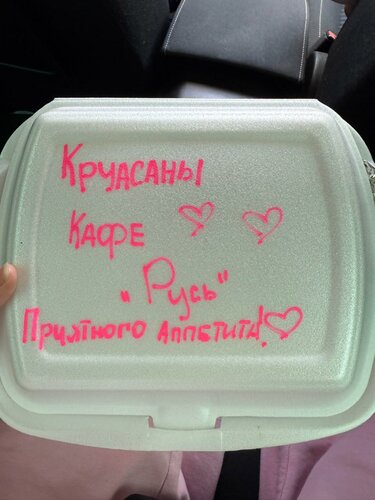 Круасаны
Кафе
"Русь"
Приятного аппетита!